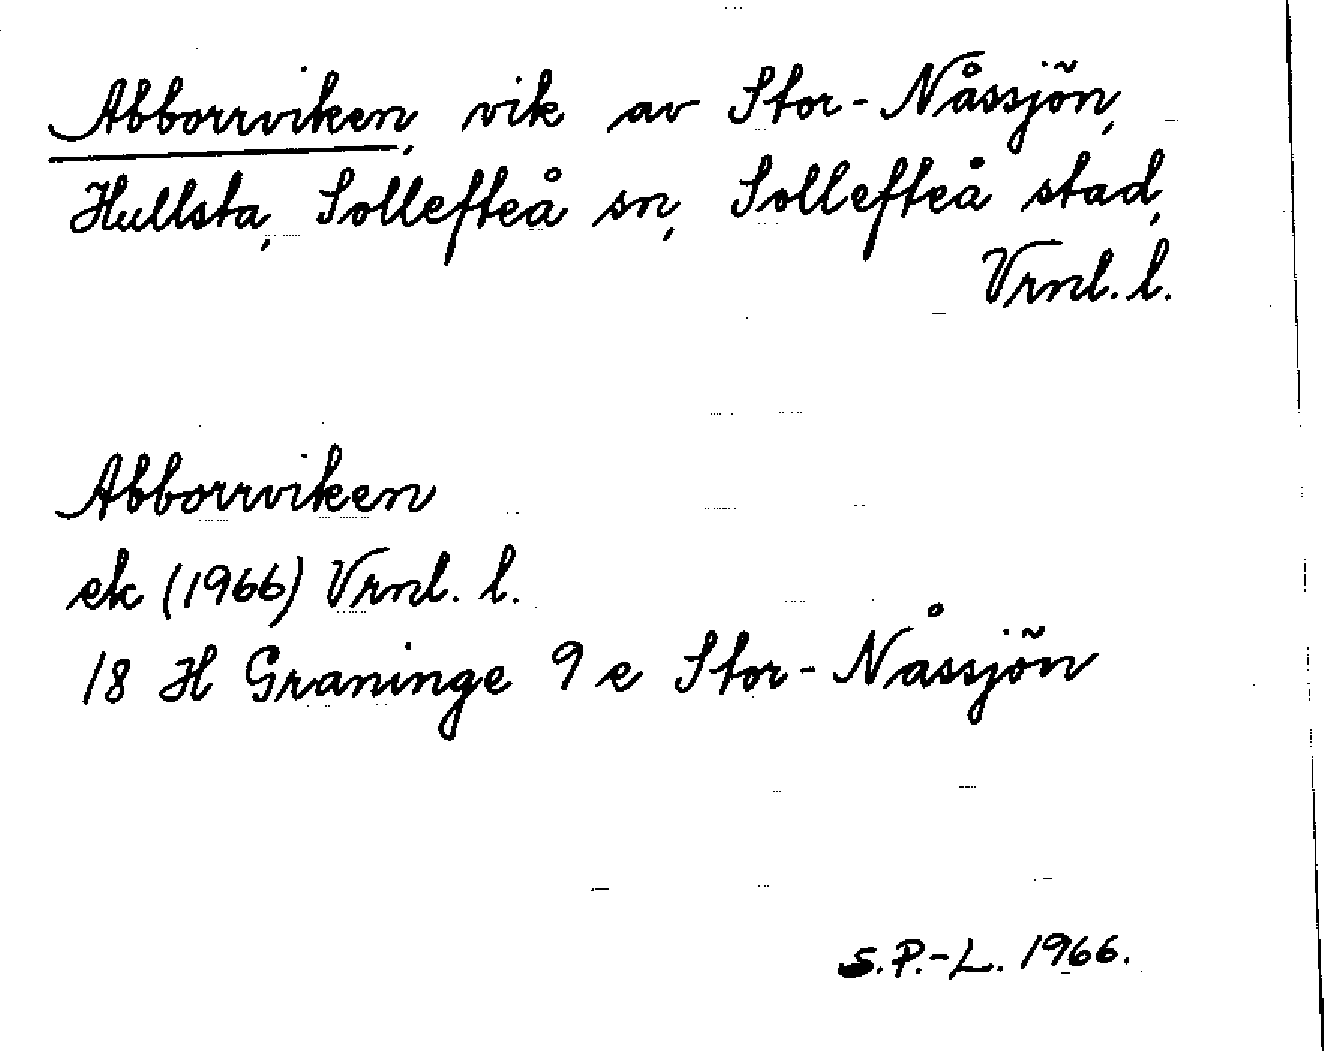 Abborrviken, vik av Stor-Nåssjön,
Hullsta, Sollefteå sn, Sollefteå stad,
Vrnl. l.
Abborrviken
ek (1966) Vrnl. l.
18 H Graninge 9 e Stor-Nåssjön
S.P.-L. 1966.